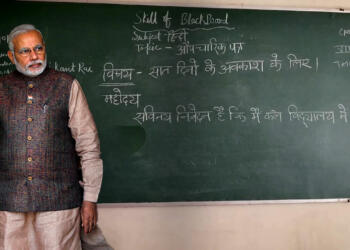 Skill of BlackBoard
Subject- हिंदी
Topic - औपचारिक पत्र
विषय - सात दिनों के अवकाश के लिए।
महोदय
सविनय निवेदन है कि मैं कल विद्यालय में